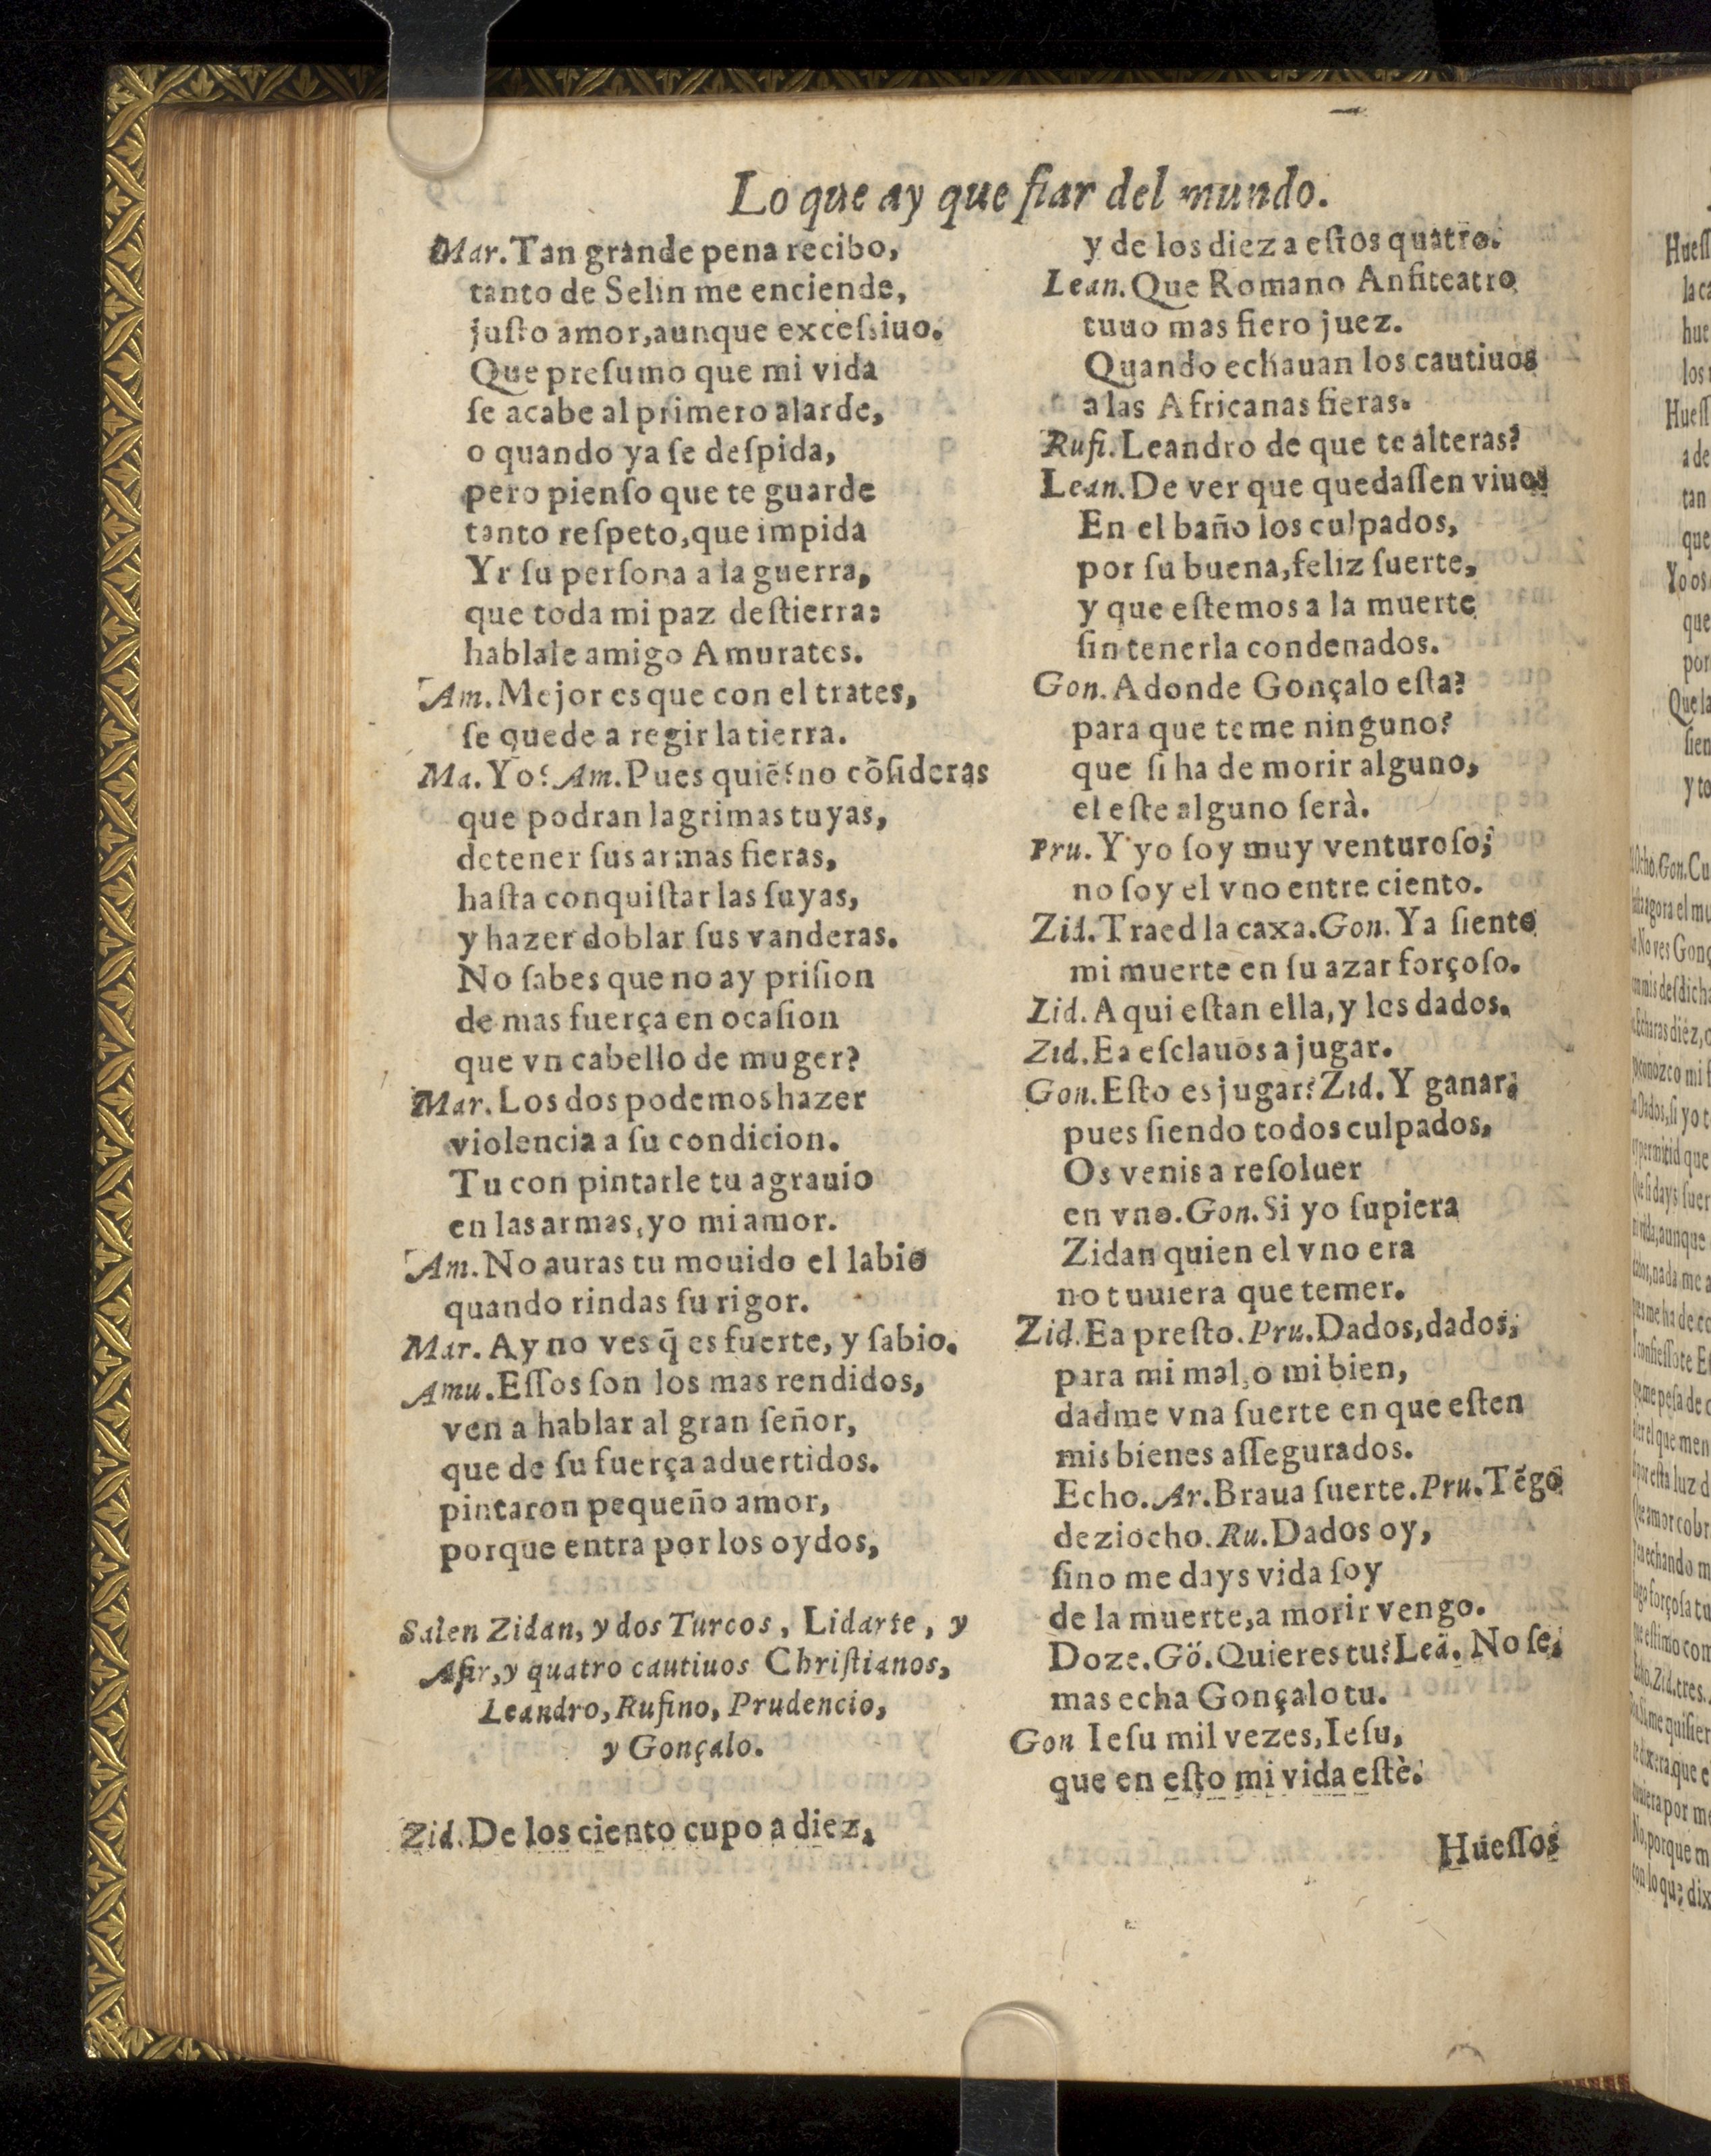 Lo que ay que fiar del mundo.
Mar. Tan grande pena recibo,
tanto de Selin me enciende,
juſto amor, aunque exceſsiuo.
Que preſumo que mi vida
ſe acabe al primero alarde,
o quando ya ſe deſpida,
pero pienſo que te guarde
tanto reſpeto, que impida
Yr ſu perſona a la guerra,
que toda mi paz deſtierra:
hablale amigo Amurates.
Am. Mejor es que con el trates,
ſe quede a regir la tierra.
Ma. Yo? Am. Pues quiē? no cōſideras
que podran lagrimas tuyas,
detener ſus armas fieras,
haſta conquiſtar las ſuyas,
y hazer doblar ſus vanderas.
No ſabes que no ay priſion
de mas fuerça en ocaſion
que vn cabello de muger?
Mar. Los dos podemos hazer
violencia a ſu condicion.
Tu con pintarle tu agrauio
en las armas, yo mi amor.
Am. No auras tu mouido el labio
quando rindas ſu rigor.
Mar. Ay no ves q̄ es fuerte, y ſabio.
Amu. Eſſos ſon los mas rendidos,
ven a hablar al gran ſeñor,
que de ſu fuerça aduertidos.
pintaron pequeño amor,
porque entra por los oydos,
Salen Zidan, y dos Turcos, Lidarte, y
Aſir, y quatro cautiuos Chriſtianos,
Leandro, Rufino, Prudencio,
y Gonçalo.
Zid. De los ciento cupo a diez,
y de los diez a eſtos quatro.
Lean. Que Romano Anfiteatro
tuuo mas fiero juez.
Quando echauan los cautiuos
a las Africanas fieras.
Rufi. Leandro de que te alteras?
Lean. De ver que quedaſſen viuos
En el baño los culpados,
por ſu buena, feliz ſuerte,
y que eſtemos a la muerte
ſin tenerla condenados.
Gon. Adonde Gonçalo eſta?
para que teme ninguno?
que ſi ha de morir alguno,
el eſte alguno ſerà.
Pru. Y yo ſoy muy venturoſo,
no ſoy el vno entre ciento.
Zid. Traed la caxa. Gon. Ya ſiento
mi muerte en ſu azar forçoſo.
Zid. Aqui eſtan ella, y los dados.
Zid. Ea eſclauos a jugar.
Gon. Eſto es jugar? Zid. Y ganar,
pues ſiendo todos culpados,
Os venis a reſoluer
en vno. Gon. Si yo ſupiera
Zidan quien el vno era
no tuuiera que temer.
Zid. Ea preſto. Pru. Dados, dados,
para mi mal, o mi bien,
dadme vna ſuerte en que eſten
mis bienes aſſegurados.
Echo. Ar. Braua ſuerte. Pru. Tēgo
deziocho. Ru. Dados oy,
ſino me days vida ſoy
de la muerte, a morir vengo.
Doze. Gō. Quieres tu? Leā. No ſe,
mas echa Gonçalo tu.
Gon Ieſu mil vezes, Ieſu,
que en eſto mi vida eſtè.
Hueſſos